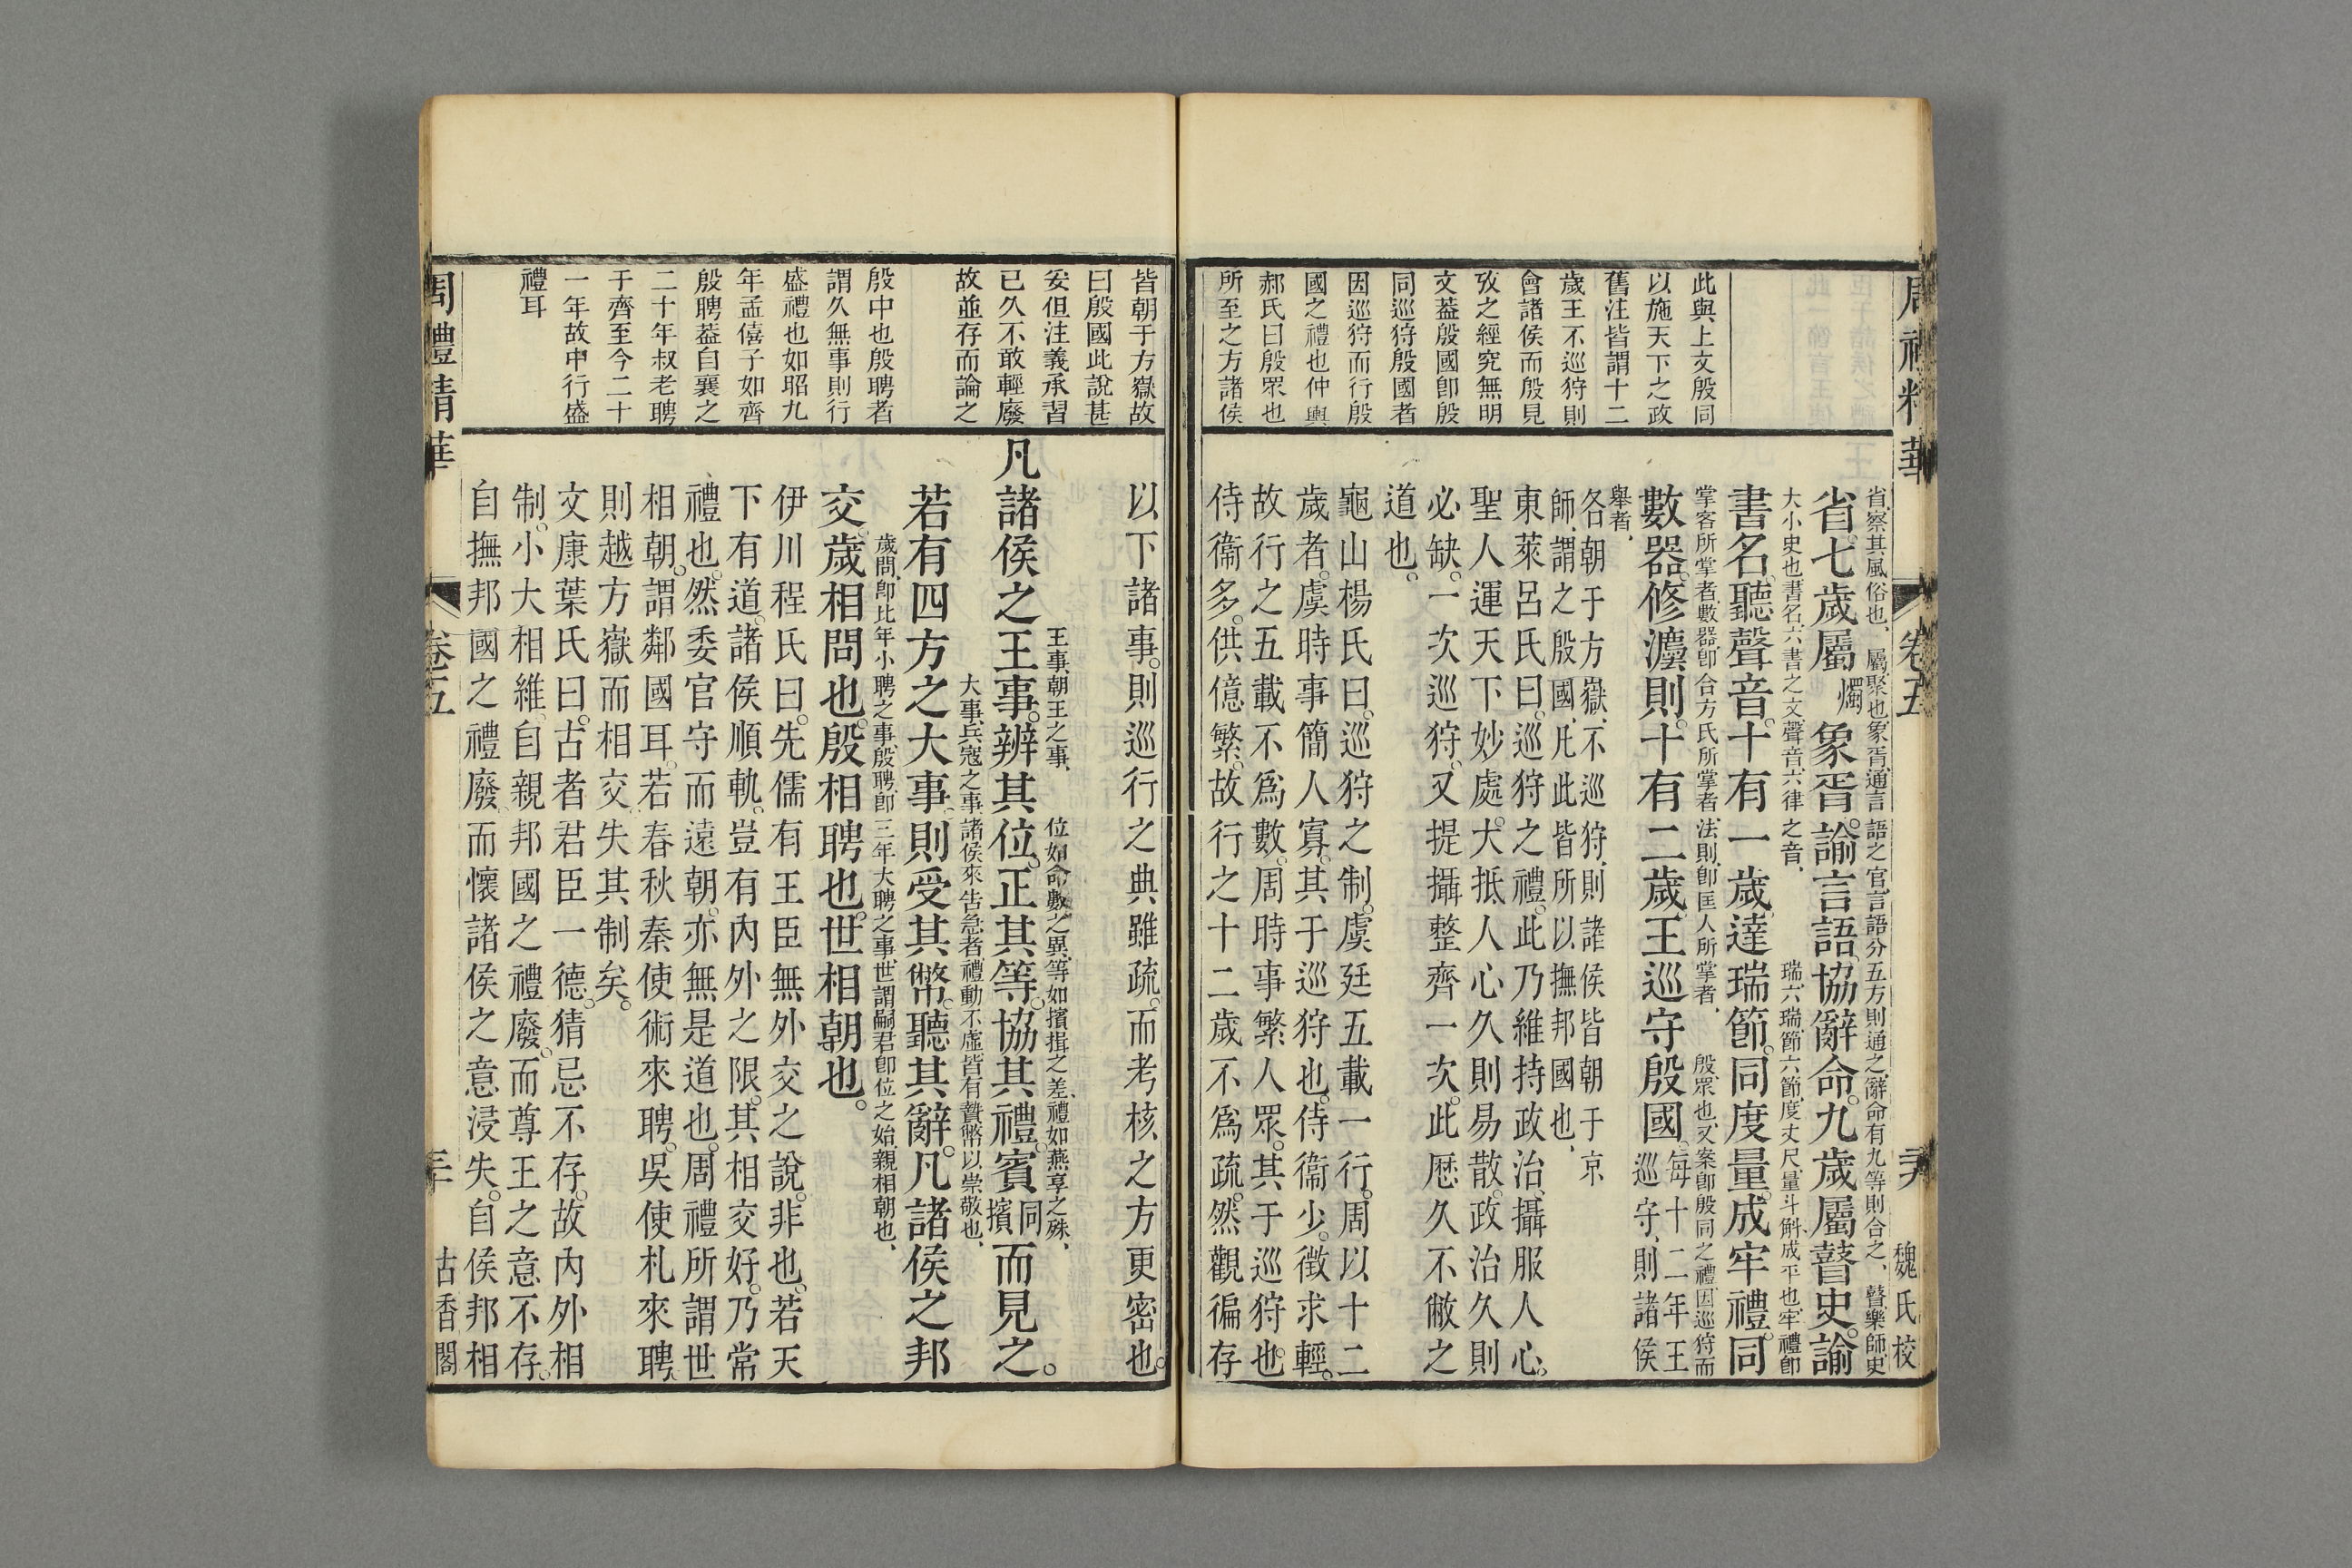 周禮精華
卷五
魏氏校
此與上文殷同
以施天下之政
舊注皆謂十二
歲王不巡狩則
會諸侯而殷見
攷之經究無明
文葢殷國卽殷
同巡狩殷國者
因巡狩而行殷
國之禮也仲輿
郝氏曰殷眾也
所至之方諸侯
省察其風俗也、屬聚也、象胥通言語之官、言語分五方則通之、辭命有九等則合之、瞽樂師、史
省。七歲屬燭象胥。諭言語。協辭命。九歲屬瞽史。諭
大小史也、書名六書之文、聲音六律之音、瑞六瑞、節六節、度丈尺、量斗斛、成平也、牢禮卽
書名。聽聲音。十有一歲。達瑞節。同度量。成牢禮。同
掌客所掌者、數器卽合方氏所掌者、法則卽匡人所掌者、殷眾也、又案卽殷同之禮、因巡狩而
數器。修灋則。十有二歲。王巡守殷國。每十二年王
巡守、則諸侯
舉者、
各朝于方嶽、不巡狩、則諸侯皆朝于京
師、謂之殷國、凡此皆所以撫邦國也、
東萊呂氏曰。巡狩之禮。此乃維持政治。攝服人心。
聖人運天下妙處。大抵人心久則易散。政治久則
必缺。一次巡狩。又提攝整齊一次。此歷久不敝之
道也。
龜山楊氏曰。巡狩之制。虞廷五載一行。周以十二
歲者。虞時事簡人寡。其于巡狩也。侍衞少。徵求輕。
故行之五載不爲數。周時事繁人眾。其于巡狩也。
侍衞多。供億繁。故行之十二歲不爲疏。然觀徧存
皆朝于方嶽故
曰殷國此說甚
妥但注義承習
已久不敢輕廢
故並存而論之
殷中也殷聘者
謂久無事則行
盛禮也如昭九
年孟僖子如齊
殷聘葢自襄之
二十年叔老聘
于齊至今二十
一年故中行盛
禮耳
以下諸事。則巡行之典雖疏。而考核之方更密也。
王事、朝王之事、位如命數之異、等如擯揖之差、禮如燕享之殊、
凡諸侯之王事。辨其位。正其等。協其禮。賓同擯而見之。
大事、兵寇之事、諸侯來告急者、禮動不虛、皆有贄幣以崇敬也、
若有四方之大事。則受其幣。聽其辭。凡諸侯之邦
歲問、卽比年小聘之事、殷聘、卽三年大聘之事、世謂嗣君卽位之始、親相朝也、
交。歲相問也。殷相聘也。世相朝也。
伊川程氏曰。先儒有王臣無外交之說。非也。若天
下有道。諸侯順軌。豈有內外之限。其相交好。乃常
禮也。然委官守而遠朝。亦無是道也。周禮所謂世
相朝。謂鄰國耳。若春秋秦使術來聘。吳使札來聘。
則越方嶽而相交。失其制矣。
文康葉氏曰。古者君臣一德。猜忌不存。故內外相
制。小大相維。自親邦國之禮廢。而尊王之意不存。
自撫邦國之禮廢。而懷諸侯之意浸失。自侯邦相
周禮精華
卷五
古香閣